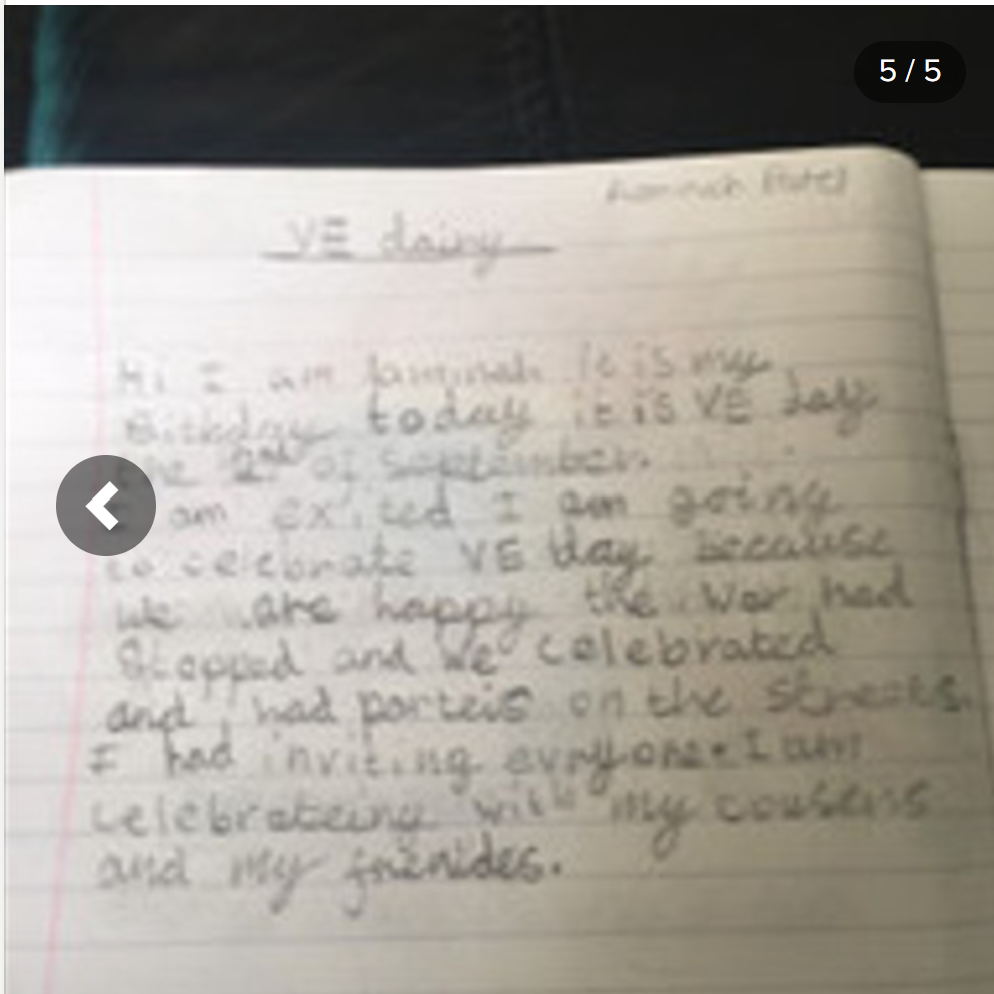 5 / 5
VE dairy
Hi I am it is my
Bithday today it is VE day
the 2nd of September.
am exited I am going
to celebrate VE day because
We are happy the War had
Stopped and we celebrated
and had parteis on the streets.
I had inviting evryone. I am
celebrateing with my cousens
and my frienides.